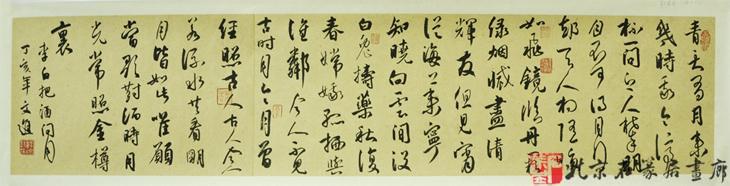 青天有月來
幾時我今停
杯一問之人攀明
月不可得月行
却與人相隨皎
如飛鏡臨丹闕
绿烟滅盡清
輝發但見宵
從海上來寧
知曉向雲間没
白兔擣藥秋復
春嫦娥孤栖與
誰鄰今人不見
古時月今月曾
經照古人古人今人
若流水共看明
月皆如此唯願
當歌對酒時月
光常照金樽
裏
李白把酒问月
丁亥年文
北京 畫廊